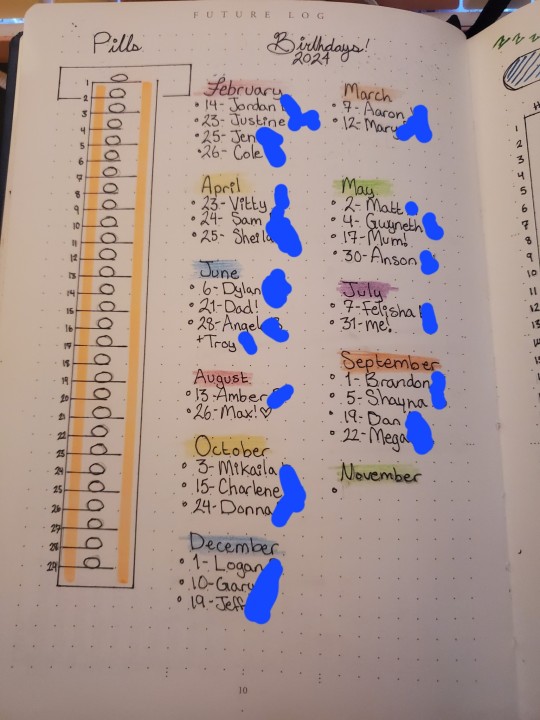 FUTURE LOG
Pills
Birthdays!
2024
1
2
3
4
5
6
7
8
9
10
11
12
13
14
15
16
17
18
19
20
21
22
23
24
25
26
27
28
29
February
• 14- Jordan
• 23- Justine
• 25- Jen
• 26- Cole
March
• 7- Aaron
• 12- Mary
April
• 23- Vitty
• 24- Sam
• 25- Sheila
May
• 2- Matt
• 4- Gwyneth
• 17- Mum!
• 30- Anson
June
• 6- Dylan
• 21- Dad!
• 28- Angel
+Troy
July
• 7- Felisha
• 31- me!
August
• 13- Amber
• 26- Max! ♡
September
• 1- Brandon
• 5- Shayna
• 19- Dan
• 22- Mega
October
• 3- Mikaila
• 15- Charlene
• 24- Donna
November
•
December
• 1- Logan
• 10- Gary
• 19- Jeff
10
1
2
3
4
5
6
7
8
9
10